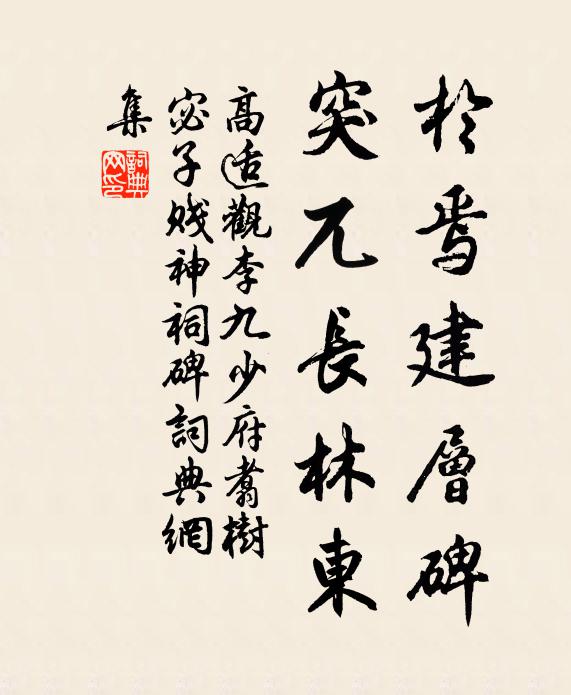 於焉建層碑
突兀長林東
高适觀李九少府翥樹
宓子賤神祠碑詞典網
集
詞典网印